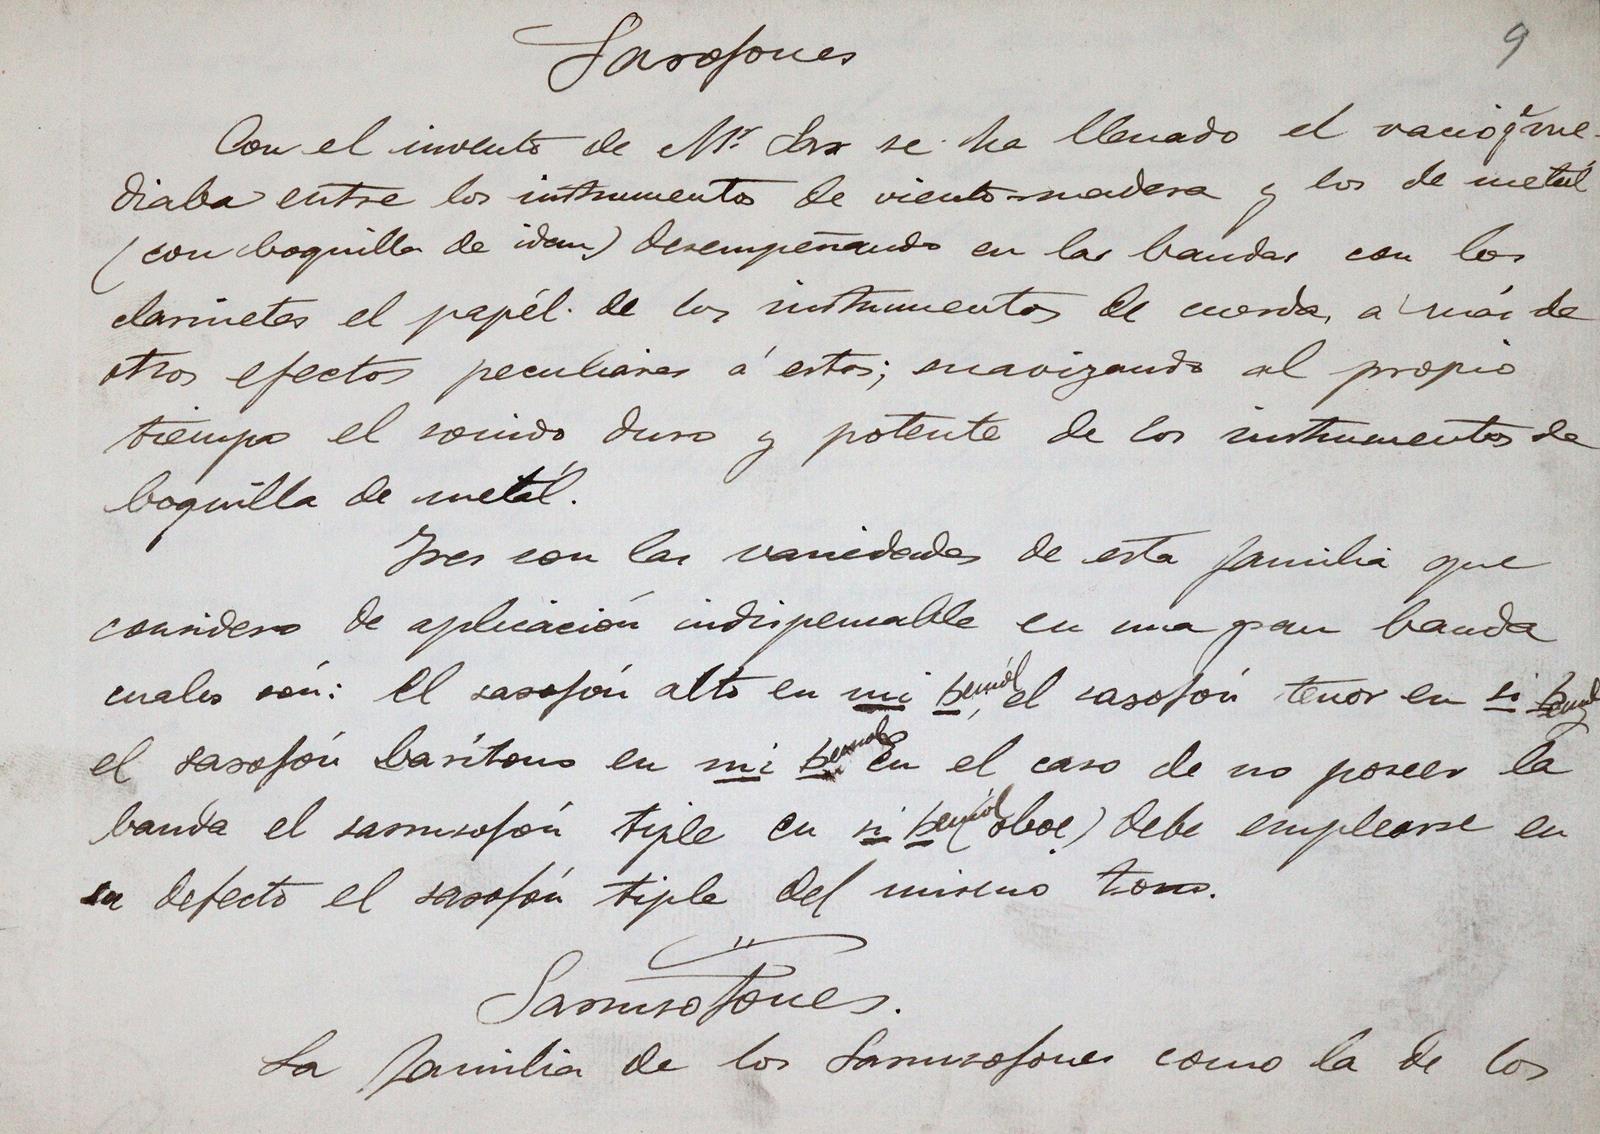 Saxofones
9
Con el invento de Mr. Sax se ha llenado el vacio q̃ me-
diaba entre los instrumentos de viento-madera y los de metál
(con boquilla de idem) desempeñando en las bandas con los
clarinetes el papél de los instrumentos de cuerda, a más de
otros efectos peculiares á estos; suavizando al propio
tiempo el sonido duro y potente de los instrumentos de
boquilla de metál.
Tres son las variedades de esta familia que
considero de aplicación indispensable en una gran banda
cuales són: el saxofón alto en mi bemól, el saxofón tenor en si bemol
el saxofón barítono en mi bemol En el caso de no poseer la
banda el sarrusofón tiple en si bemól (oboe) debe emplearse en
su defecto el saxofón tiple del mismo tono.
Sarrusofones.
La familia de los Sarrusofones como la de los